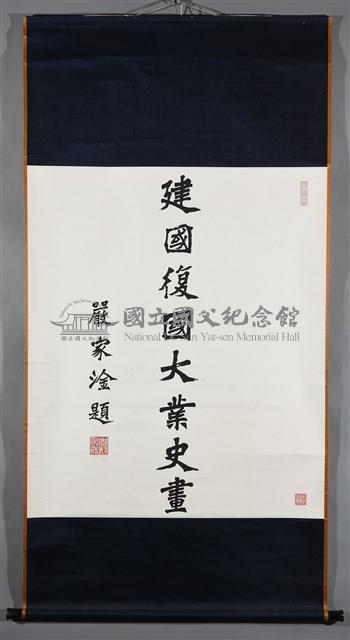 建國復國大業史畫
嚴家淦題
國立國父紀念館
National Dr. Sun Yat-sen Memorial Hall
國立國父紀念館